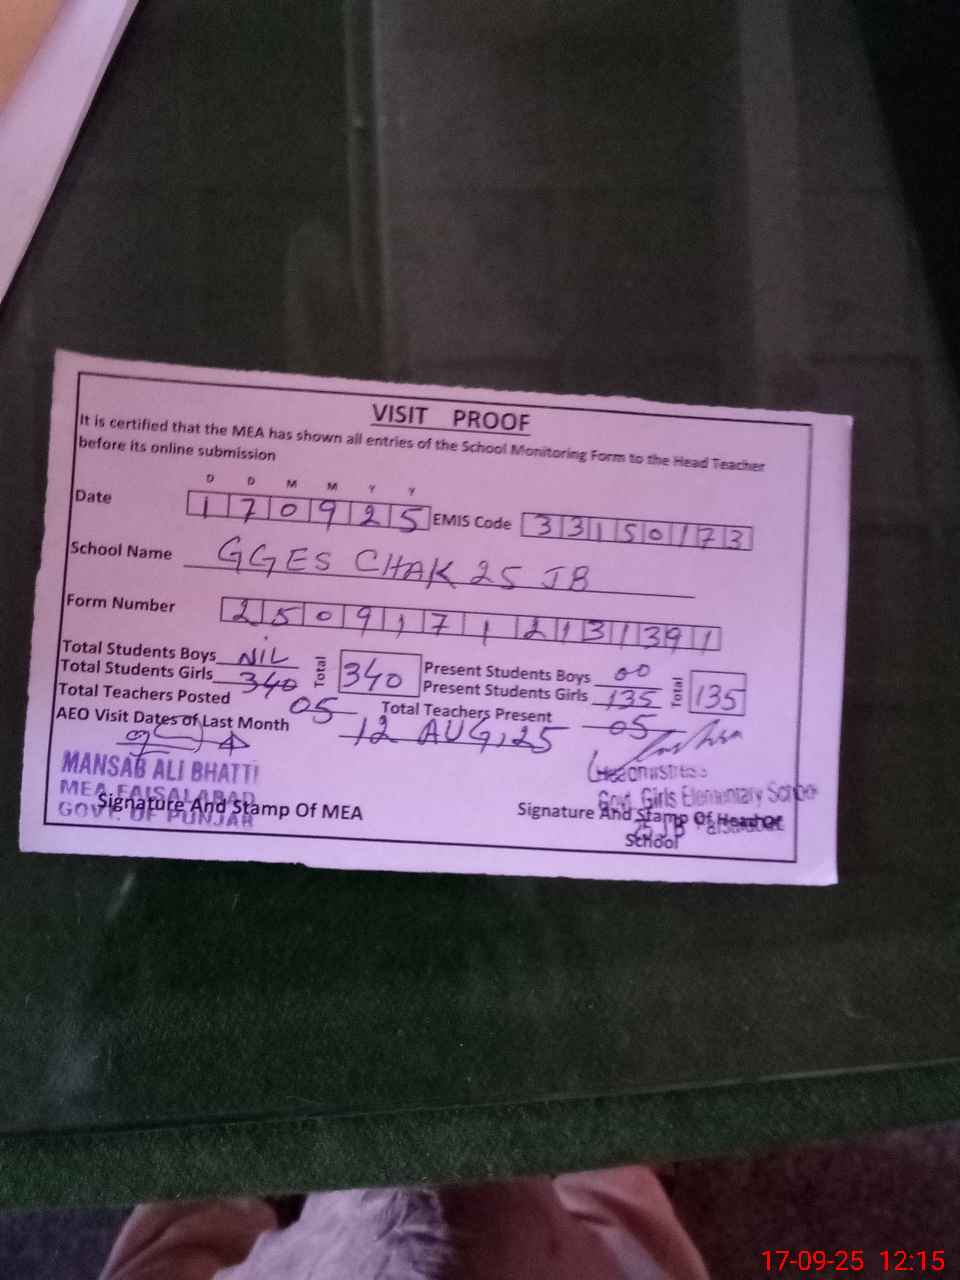 VISIT PROOF
It is certified that the MEA has shown all entries of the School Monitoring Form to the Head Teacher
before its online submission
D D M M Y Y
Date 1 7 0 9 2 5 EMIS Code 3 3 1 5 0 1 7 3
School Name GGES CHAK 25 JB
Form Number 2 5 0 9 1 7 1 2 1 3 1 39 1
Total Students Boys NIL Total 340 Present Students Boys 00 Total 135
Total Students Girls 340 Present Students Girls 135
Total Teachers Posted 05 Total Teachers Present 05
AEO Visit Dates of Last Month 12 AUG, 25
MANSAB ALI BHATTI
MEA FAISALABAD
GOVT. OF PUNJAB
Signature And Stamp Of MEA
Headmistress
Govt. Girls Elementary School
25 JB Faisalabad
Signature And Stamp Of Head Of
School
17-09-25 12:15